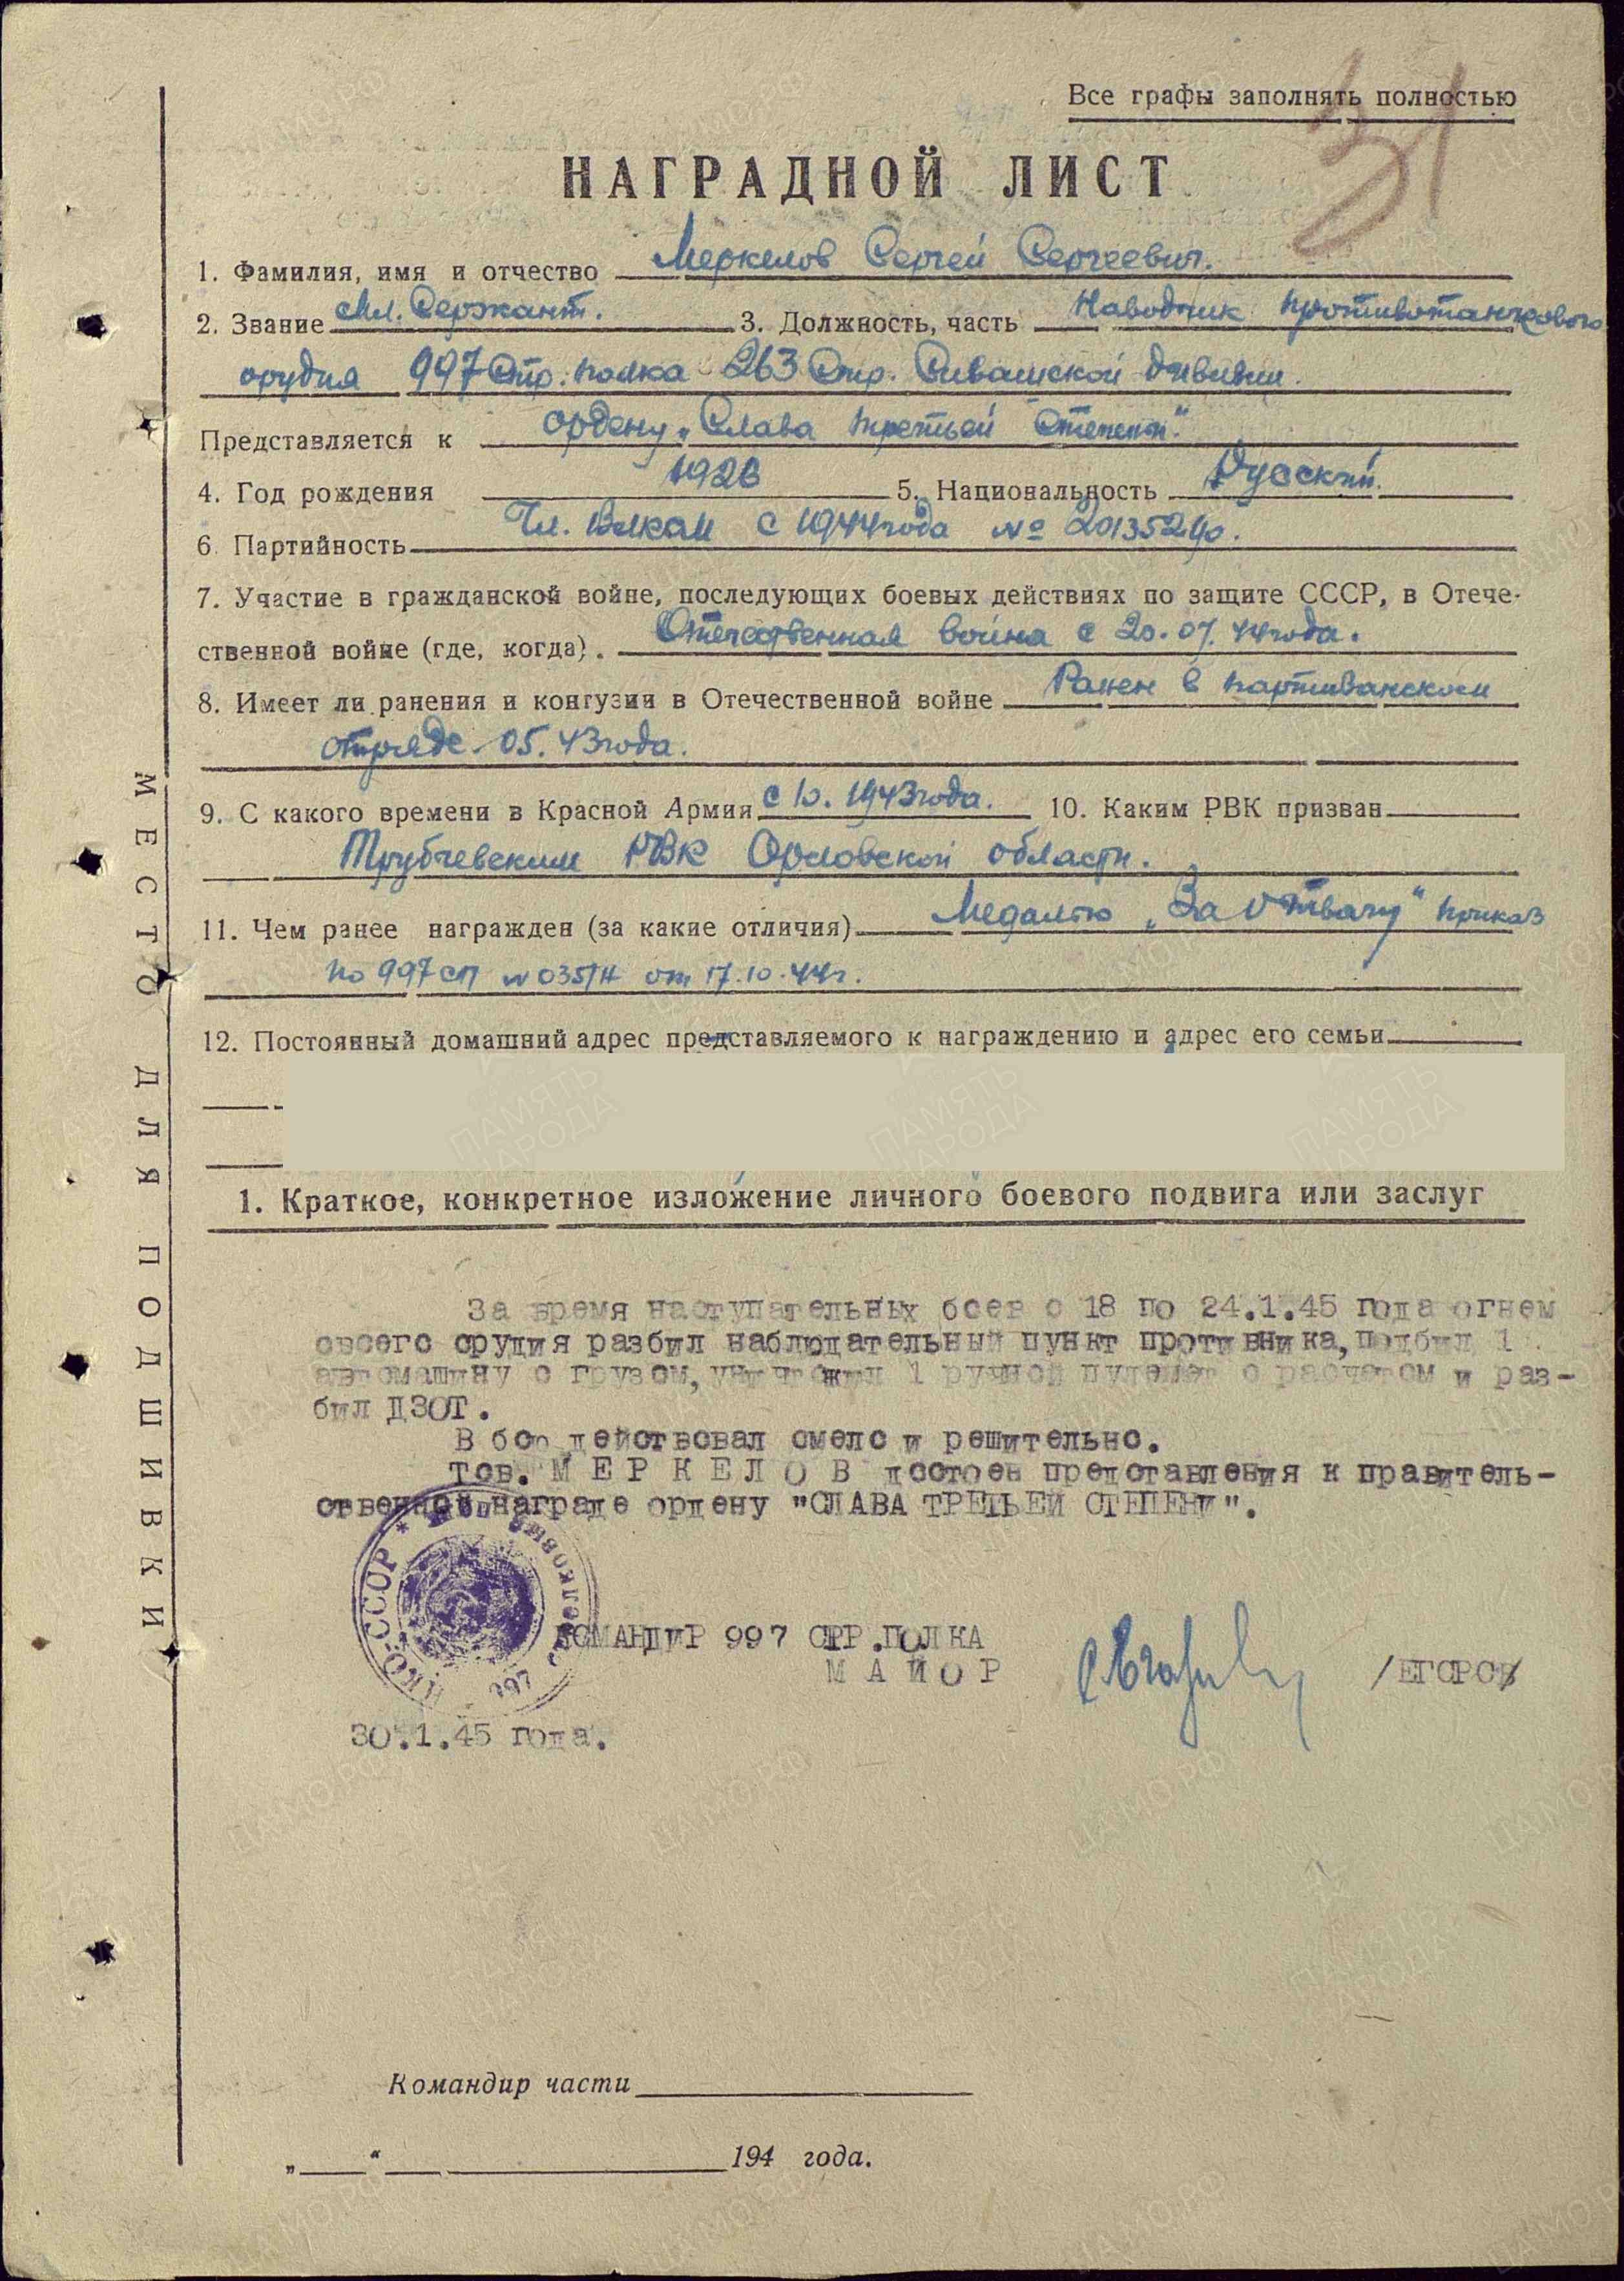 Все графы заполнять полностью
31
НАГРАДНОЙ ЛИСТ
1. Фамилия, имя и отчество Меркелов Сергей Сергеевич.
2. Звание Мл. Сержант. 3. Должность, часть Наводчик противотанкового
орудия 997 Стр. полка 263 Стр. Сивашской дивизии.
Представляется к ордену „Слава третьей степени"
4. Год рождения 1926 5. Национальность Русский.
6. Партийность Чл. ВЛКСМ с 1944 года № 20135290.
7. Участие в гражданской войне, последующих боевых действиях по защите СССР, в Отече-
ственной войне (где, когда). Отечественная война с 20.07.44 года.
8. Имеет ли ранения и контузии в Отечественной войне Ранен в партизанском
отряде 05.43 года.
9. С какого времени в Красной Армии с 10.1943 года. 10. Каким РВК призван
Трубчевским РВК Орловской области.
11. Чем ранее награжден (за какие отличия) Медалью „За отвагу" приказ
по 997 сп № 035/н от 17.10.44г.
12. Постоянный домашний адрес представляемого к награждению и адрес его семьи
1. Краткое, конкретное изложение личного боевого подвига или заслуг
За время наступательных боев с 18 по 24.1.45 года огнем
своего орудия разбил наблюдательный пункт противника, подбил 1
автомашину с грузом, уничтожил 1 ручной пулемет с расчетом и раз-
бил ДЗОТ.
В бою действовал смело и решительно.
Тов. МЕРКЕЛОВ достоен представления к правитель-
ственной награде ордену "СЛАВА ТРЕТЬЕЙ СТЕПЕНИ".
НКО-СССР * 997 стрелковый
КОМАНДИР 997 СТР.ПОЛКА
МАЙОР /ЕГОРОВ/
30.1.45 года.
Командир части
„ “ 194 года.
МЕСТО ДЛЯ ПОДШИВКИ
ЦАМО.РФ
ПАМЯТЬ НАРОДА